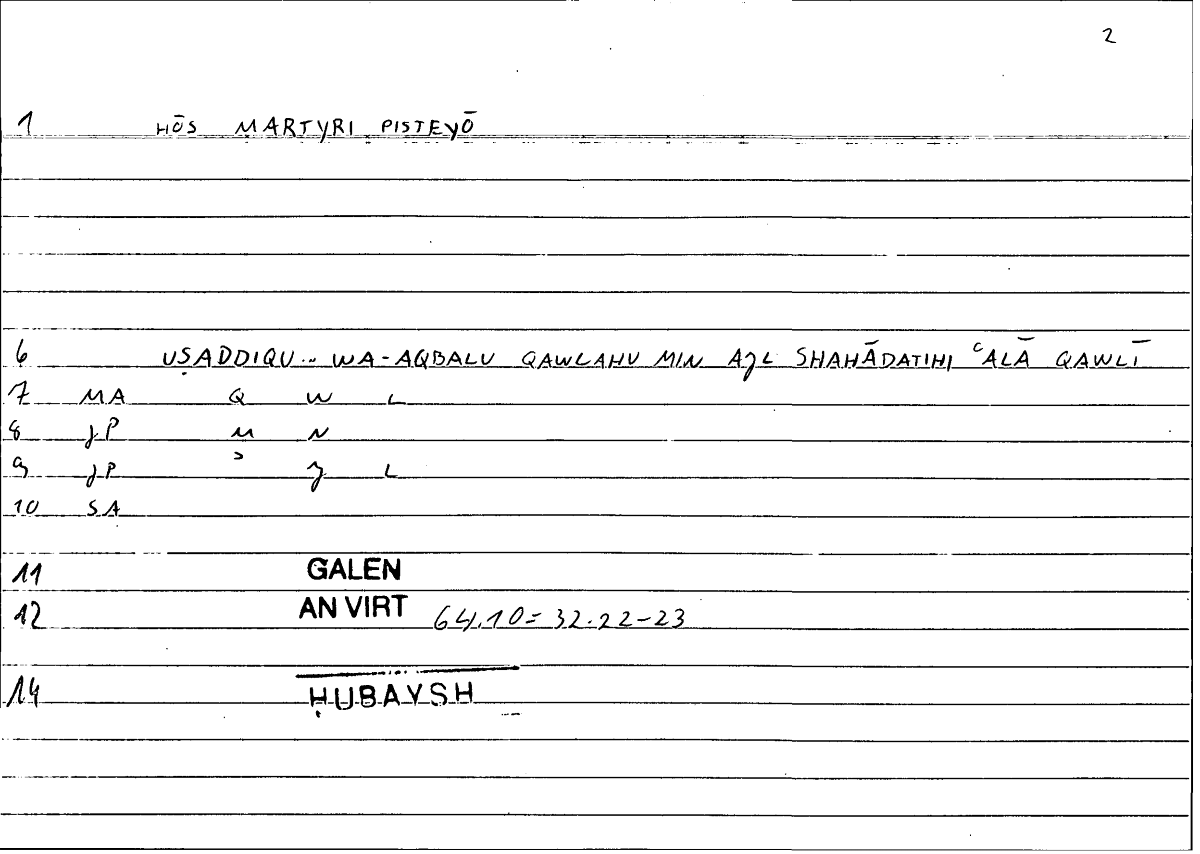 2
1 HŌS MARTYRI PISTEYŌ
6 UṢADDIQU .. WA-AQBALU QAWLAHU MIN AJL SHAHĀDATIHI ʿALĀ QAWLĪ
7 MA Q W L
8 JP M N
9 JP ʾ J L
10 SA
11 GALEN
12 AN VIRT 64.10 = 32.22-23
14 ḤUBAYSH